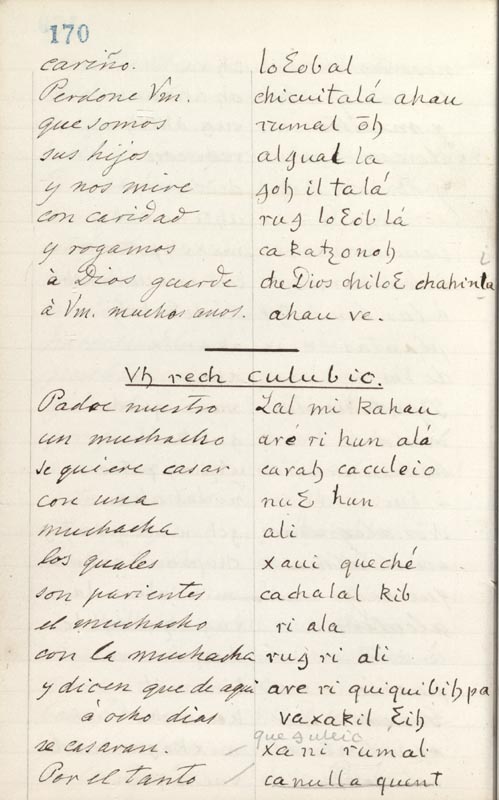 170
cariño. loƐobal
Perdone Vm. chicuitalá ahau
que somos rumal ōꜧ
sus hijos alꜫual la
y nos mire ꜫoꜧ il talá
con caridad ruꜫ loƐob lá
y rogamos ca katzonoꜧ
à Dios guarde che Dios chiloƐ chahinta
à Vm. muchos anos. ahau ve.
Vꜧ rech culubic.
Padre nuestro Lal mi kahau
un muchacho aré ri hun alá
se quiere casar carah caculeic
con una nuƐ hun
muchacha ali
los quales xaui queché
son parientes cachalal kib
el muchacho ri ala
con la muchacha ruꜫ ri ali
y dicen que de aqui are ri quiquibiꜧ pa
à ocho dias vaxakil Ɛiꜧ
que guleic
se casaran. xa ni rumal
Por el tanto canulla quent